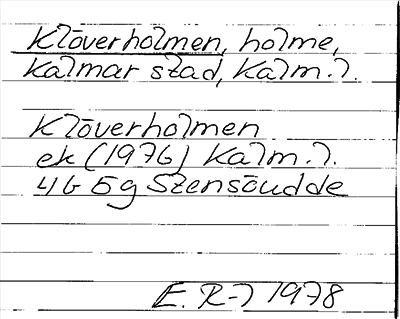 Klöverholmen, holme,
Kalmar stad, Kalm. l.
Klöverholmen
ek (1976) Kalm. l.
4G 5g Stensöudde
E. R-l 1978